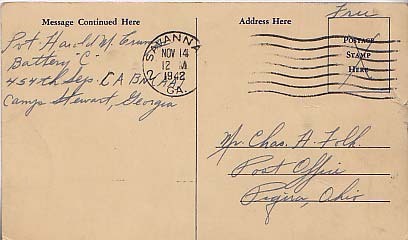 Message Continued Here
Address Here
Free
Pvt. Harold M.
Battery "C"
454th Sep. C A Bn. AA
Camp Stewart, Georgia
SAVANNA
NOV 14
12 M
1942
GA.
2
POSTAGE
STAMP
HERE
Mr. Chas. A. Folk.
Post Office
Piqua, Ohio